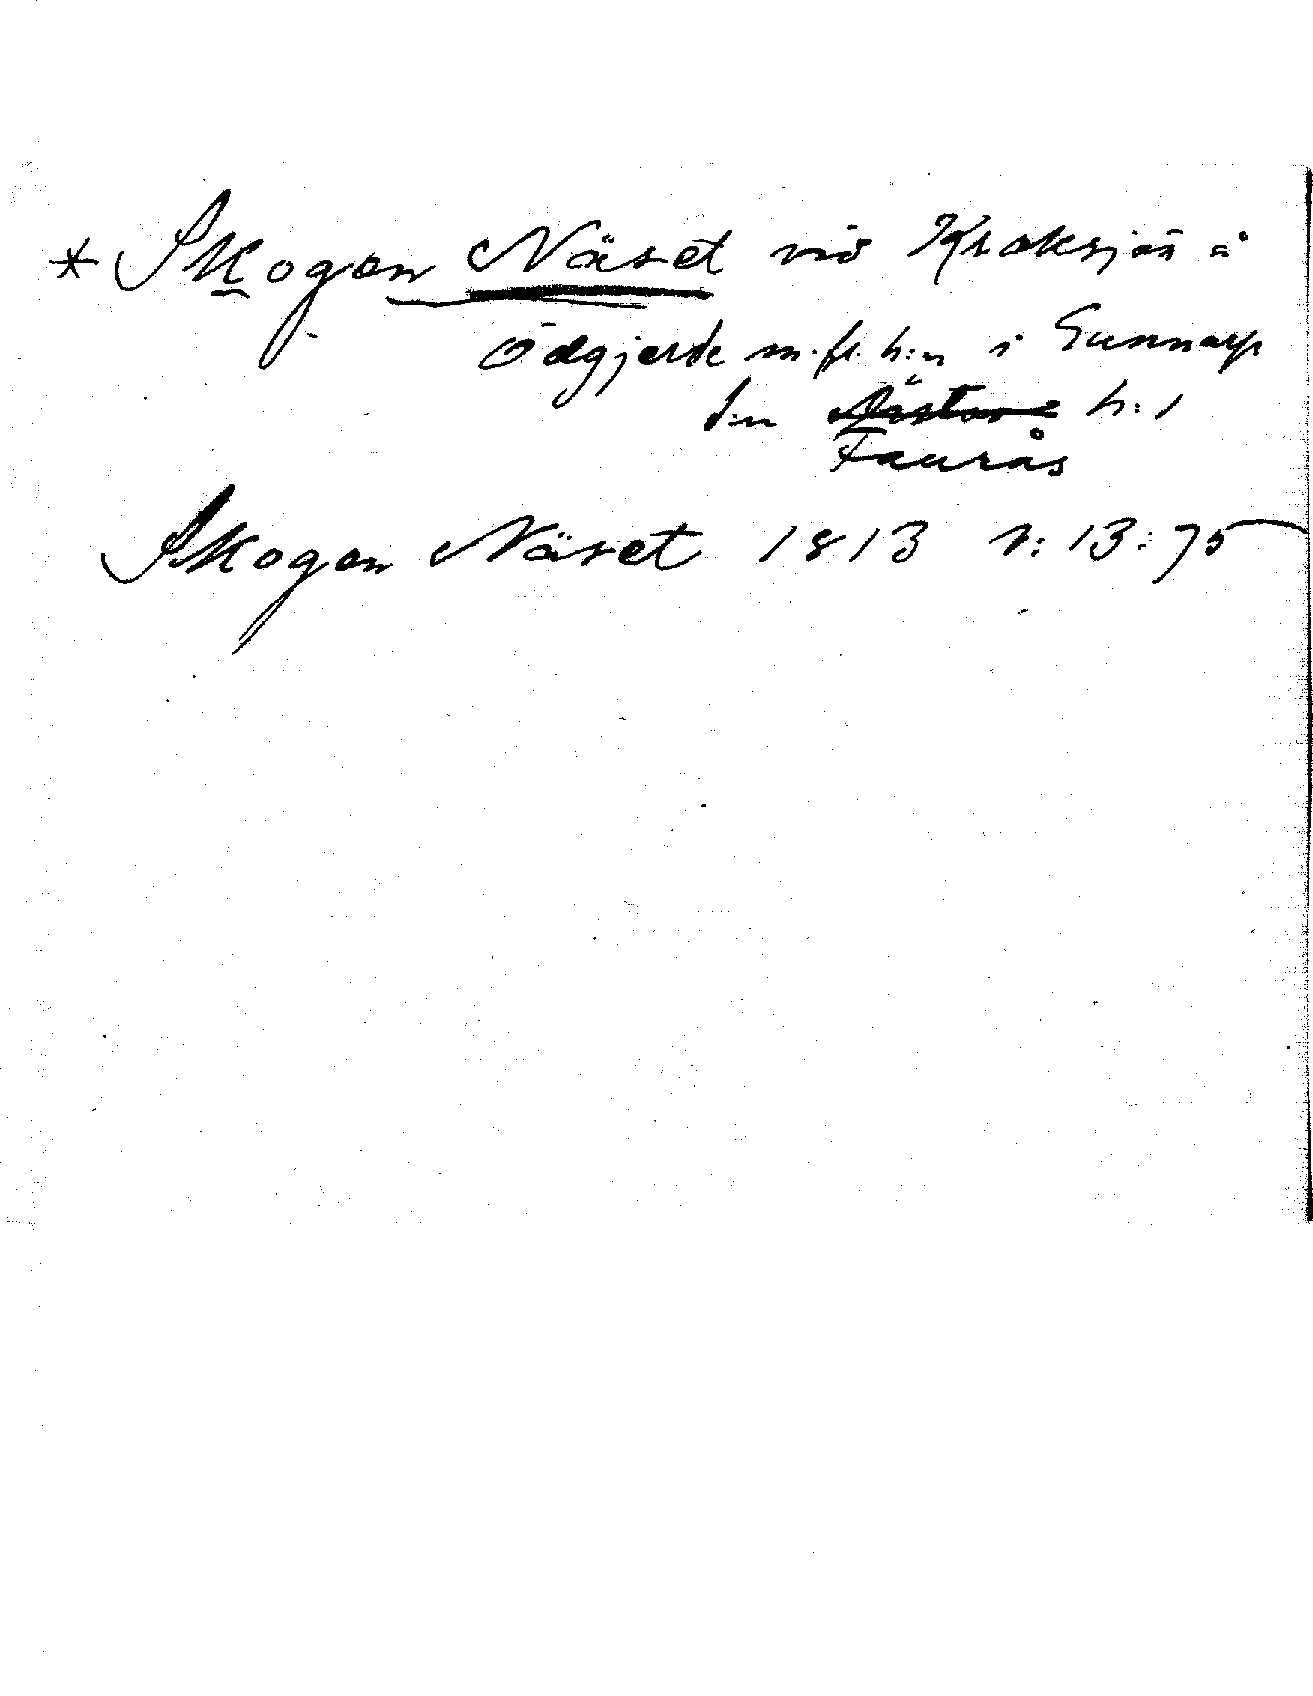 * Skogen Näset vid Kroksjöä å
Ödgjerde m. fl. h:n i Gunnarp
s:n Årstads h:1
Faurås
Skogen Näset 1813 n: 13: 75